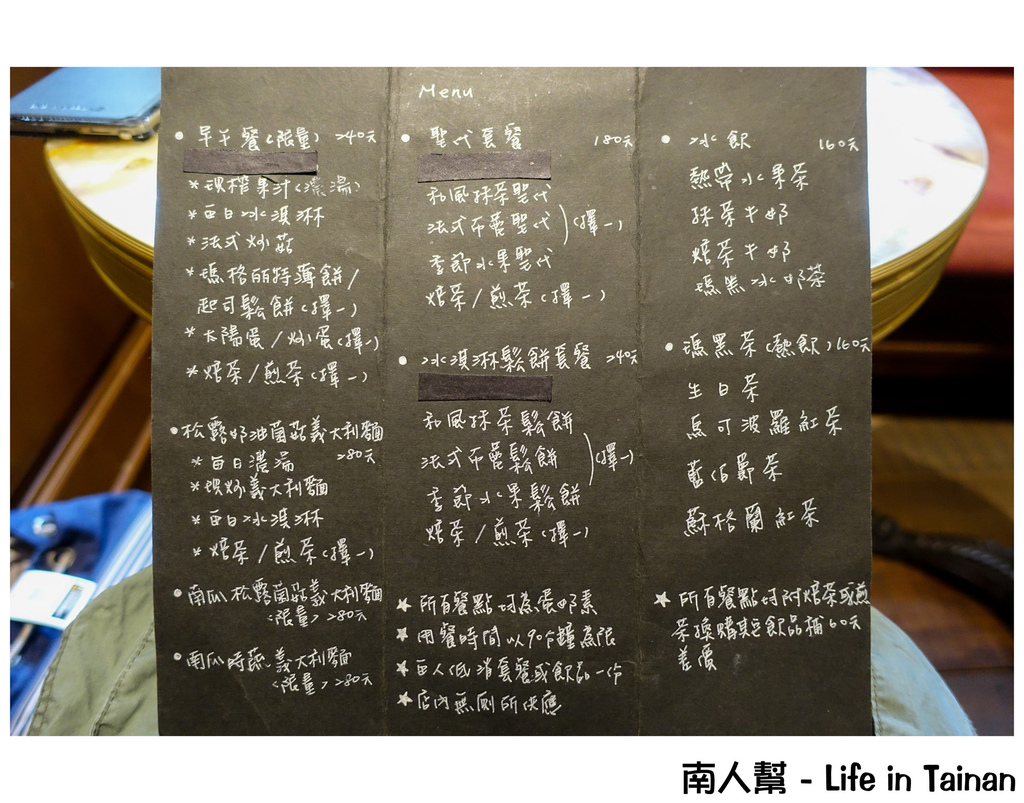 Menu
• 早午餐(限量) 240元
*現榨果汁(濃湯)
*每日冰淇淋
*法式炒菇
*瑪格麗特薄餅/
起司鬆餅(擇一)
*太陽蛋/炒蛋(擇一)
*焙茶/煎茶(擇一)
•松露奶油菌菇義大利麵
280元
*每日濃湯
*現炒義大利麵
*每日冰淇淋
*焙茶/煎茶(擇一)
•南瓜松露菌菇義大利麵
<限量>280元
•南瓜時蔬義大利麵
<限量>280元
• 聖代套餐 180元
和風抹茶聖代
法式布蕾聖代 (擇一)
季節水果聖代
焙茶/煎茶(擇一)
• 冰淇淋鬆餅套餐 240元
和風抹茶鬆餅
法式布蕾鬆餅 (擇一)
季節水果鬆餅
焙茶/煎茶(擇一)
★所有餐點均為蛋奶素
★用餐時間以90分鐘為限
★每人低消套餐或飲品一份
★店內無廁所供應
• 冰飲 160元
熱帶水果茶
抹茶牛奶
焙茶牛奶
瑪黑冰奶茶
• 瑪黑茶(熱飲)160元
生日茶
馬可波羅紅茶
藍伯爵茶
蘇格蘭紅茶
★所有餐點均附焙茶或煎
茶換購其它飲品補60元
差價
南人幫 - Life in Tainan